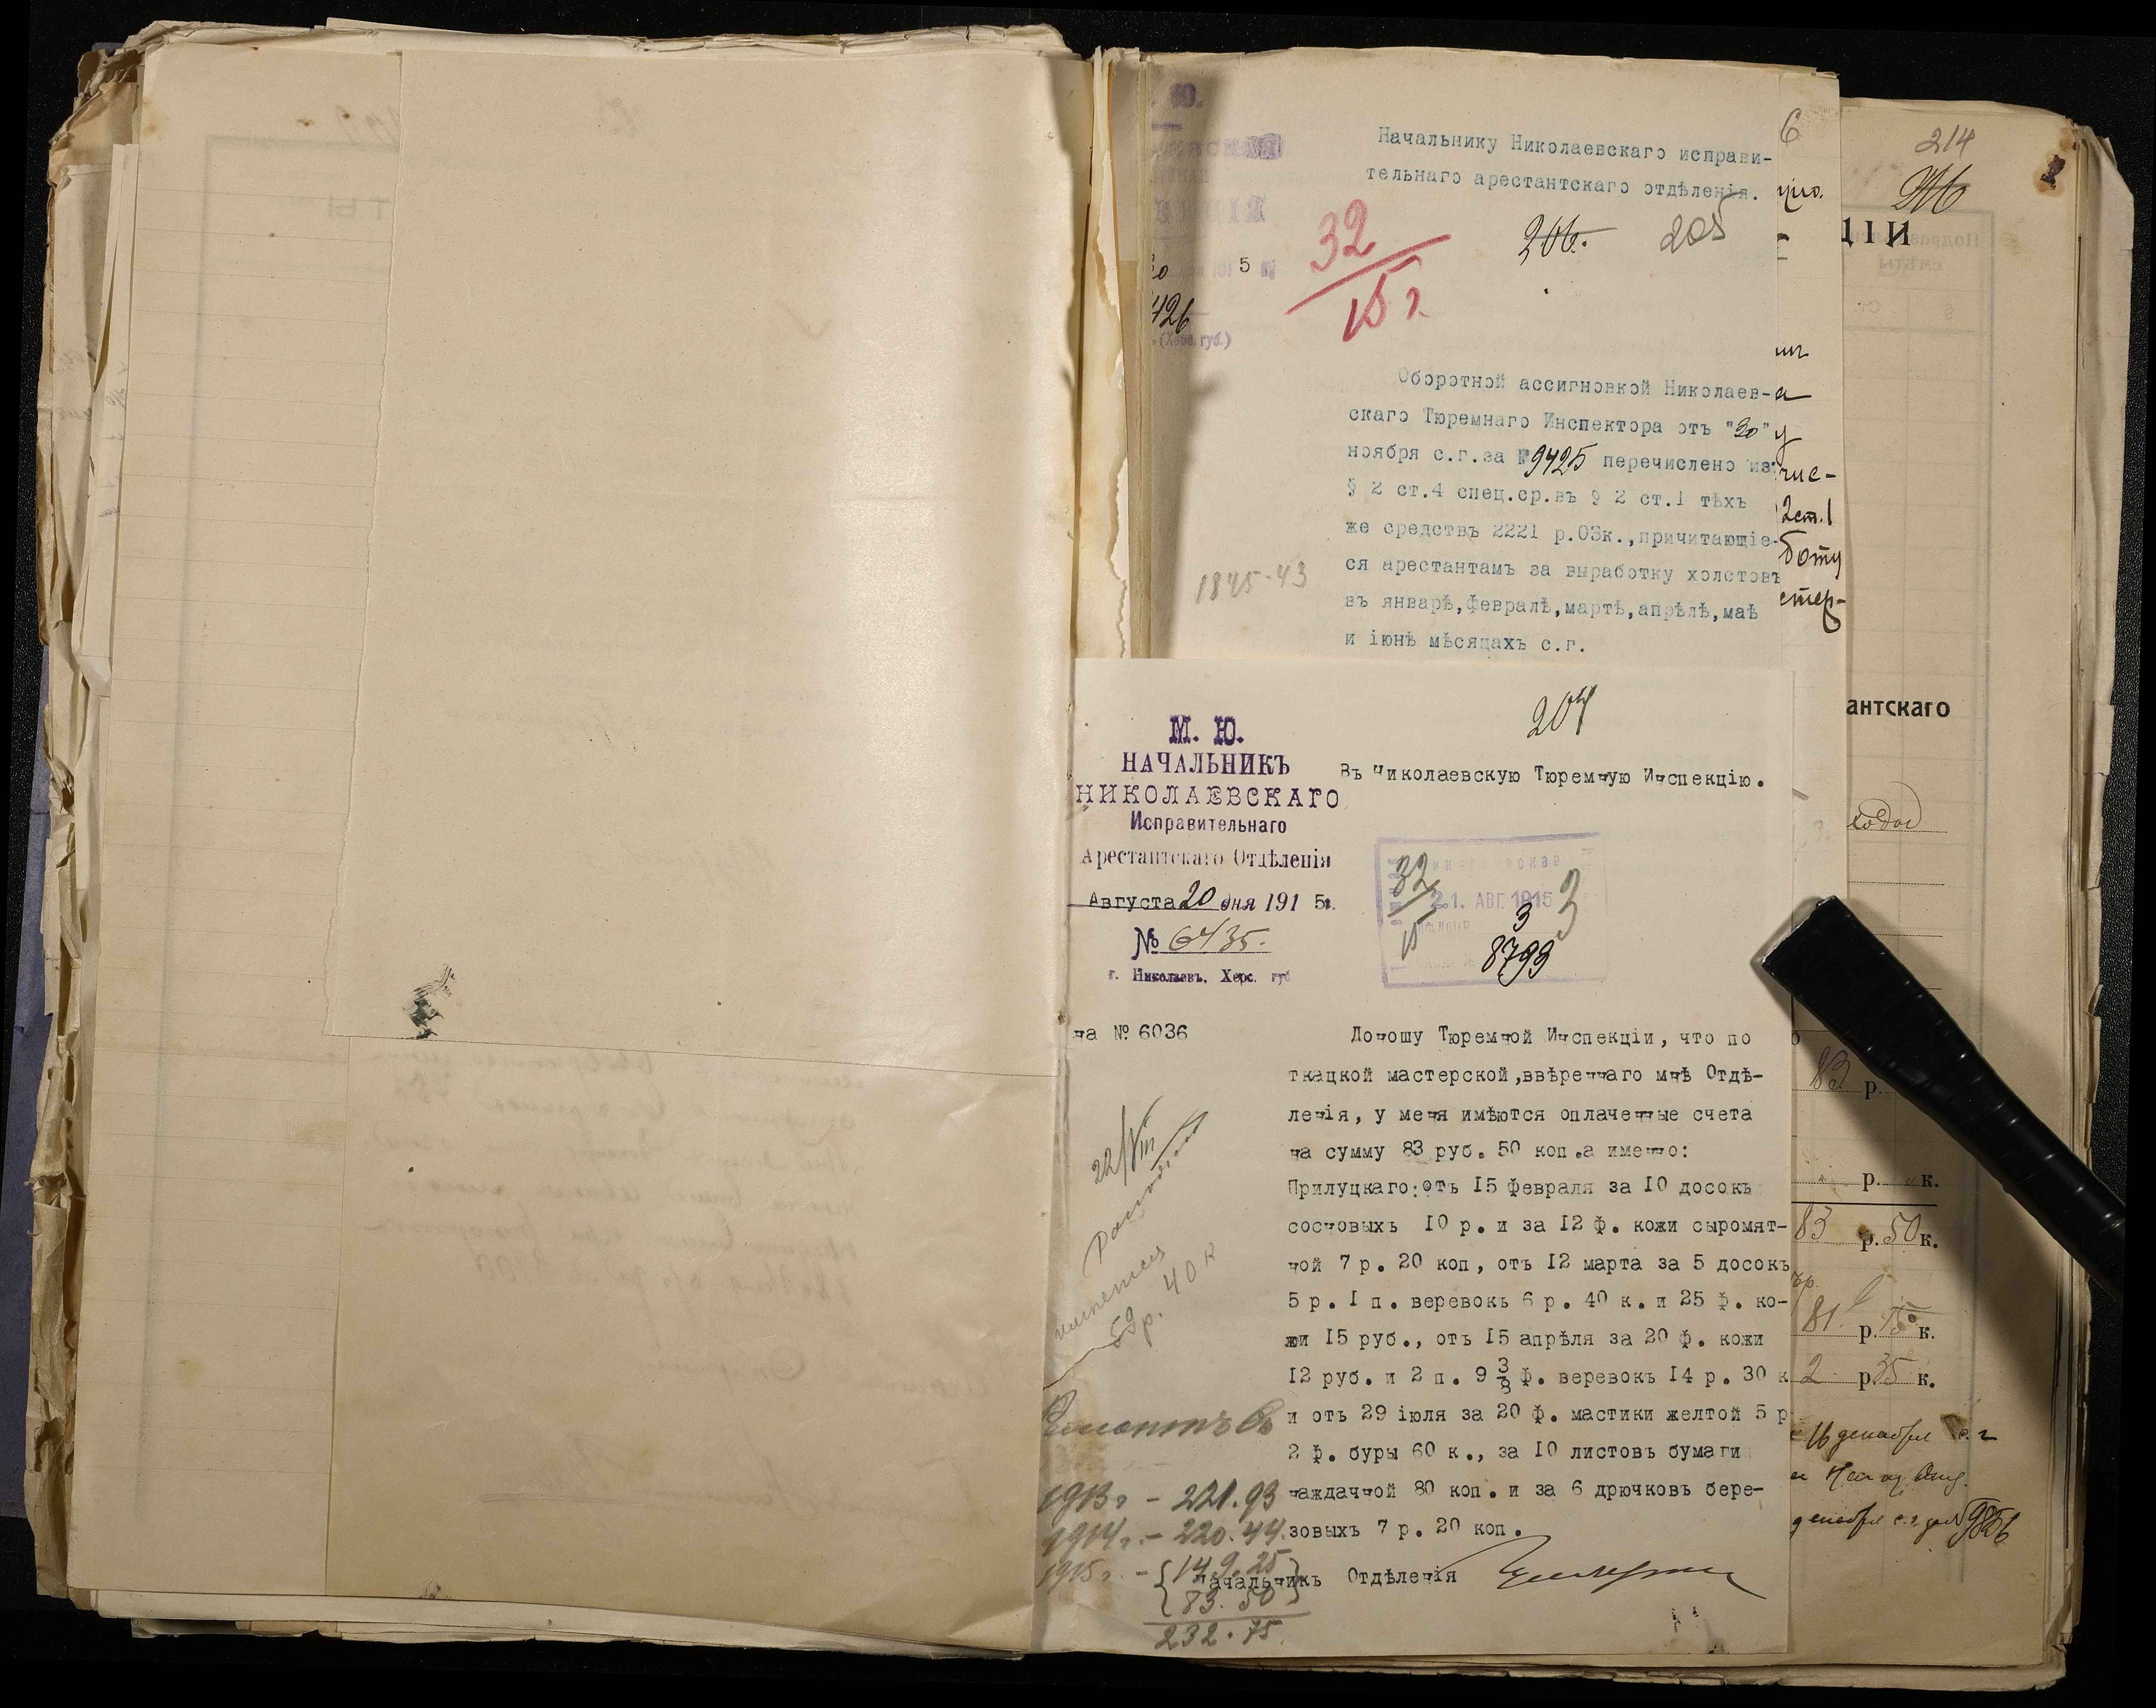 Начальнику Николаевскаго исправи-
тельнаго арестантскаго отдѣленія.
32
15 г
206.
205
5
426
(Херс. губ.)
Оборотной ассигновкой Николаев-
скаго Тюремнаго Инспектора отъ "30"
ноября с.г.за №9425 перечислено изъ
§ 2 ст.4 спец.ср.въ § 2 ст.I тѣхъ
же средствъ 2221 р.03к.,причитающіе-
ся арестантамъ за выработку холстовъ
въ январѣ,февралѣ,мартѣ,апрѣлѣ,маѣ
и іюнѣ мѣсяцахъ с.г.
1845-43
204
М. Ю.
НАЧАЛЬНИКЪ
НИКОЛАЕВСКАГО
Исправительнаго
Арестантскаго Отдѣленія
Августа 20 дня 1915г.
№ 6435.
г. Николаевъ, Херс. губ
Въ Николаевскую Тюремную Инспекцію.
32
15
21. АВГ 1915
3
3
8799
на № 6036
Доношу Тюремной Инспекціи, что по
ткацкой мастерской,ввѣреннаго мнѣ Отдѣ-
ленія, у меня имѣются оплаченные счета
на сумму 83 руб. 50 коп.а именно:
Прилуцкаго:отъ I5 февраля за I0 досокъ
сосновыхъ I0 р. и за I2 ф. кожи сыромят-
ной 7 р. 20 коп, отъ I2 марта за 5 досокъ
5 р. I п. веревокъ 6 р. 40 к. и 25 ф. ко-
жи I5 руб., отъ I5 апрѣля за 20 ф. кожи
I2 руб. и 2 п. 9 3/8 ф. веревокъ I4 р. 30 к
и отъ 29 іюля за 20 ф. мастики желтой 5 р
2 ф. буры 60 к., за I0 листовъ бумаги
наждачной 80 коп. и за 6 дрючковъ бере-
зовыхъ 7 р. 20 коп.
Начальникъ Отдѣленія
22/VIII
59 р. 40 к
1913г - 221.93
1914г. - 220.44
1915г. - 149.25
83.50
232.75
214
ЦІИ
2ст.1
антскаго
83 р.
р. к.
83 р. 50 к.
81 р. 15 к.
2 р. 35 к.
16 декабря с.г
декабря с.г. за №9826